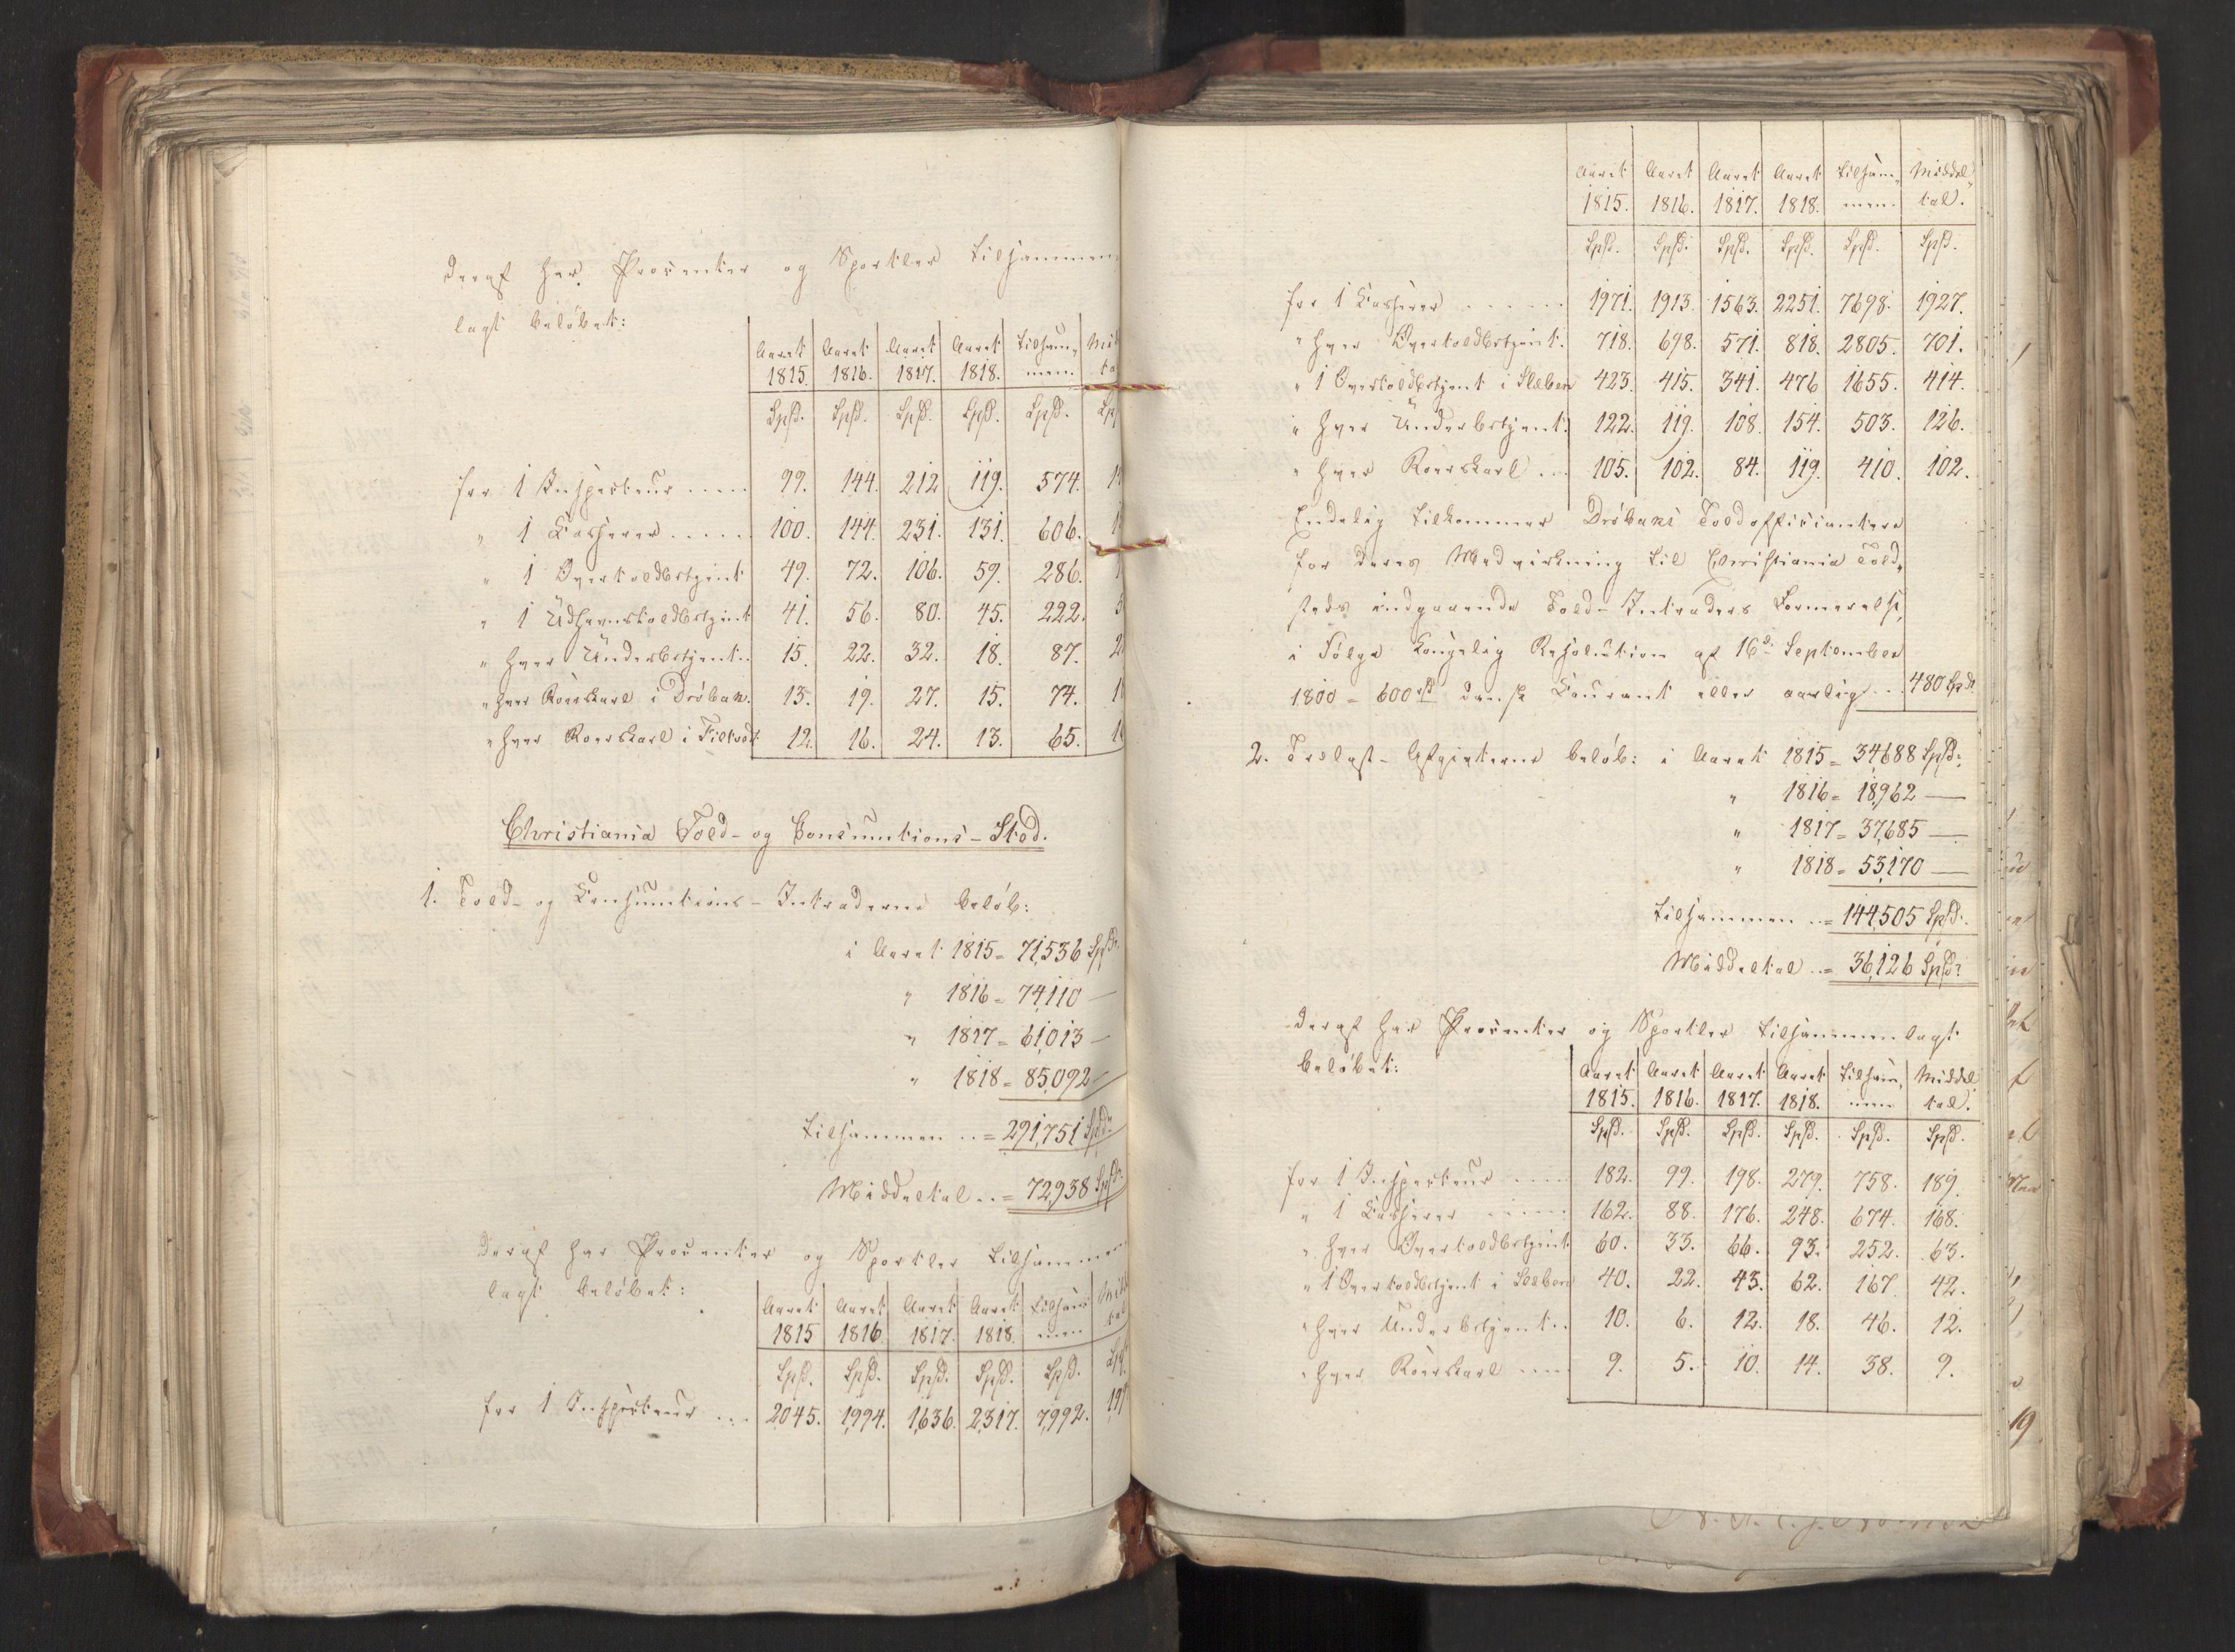 deraf har Procenter og Sportler tilsammen
lagt beløbet:
Aaret Aaret Aaret Aaret tilsam-
1815. 1816. 1817. 1818. men.
Spd. Spd. Spd. Spd. Spd.
for 1 Inspecteur ..... 99. 144. 212 119. 574.
" 1 Casserer ..... 100. 144. 231. 131. 606.
" 1 Overtoldbetjent 49. 72. 106. 59. 286.
" 1 Udhavnstoldbetjent 41. 56. 80. 45. 222.
" hver Underbetjent .. 15. 22. 32. 18. 87.
" hver Roerskarl i Drøbak. 13. 19. 27. 15. 74.
" hver Roerskarl i Filtvedt 12. 16. 24. 13. 65.
Christiania Told- og Consumtions-Sted.
1. Told- og Consumtions-Intraderne beløb:
i Aaret 1815 = 71,536 Spdr.
" 1816 = 74,110 —
" 1817 = 61,013 —
" 1818 = 85,092 —
tilsammen .. = 291,751 Spdr.
Middeltal .. = 72,938 Spdr.
Deraf har Procenter og Sportler tilsammen
lagt beløbet:
Aaret Aaret Aaret Aaret tilsam-
1815 1816. 1817. 1818. men
Spd. Spd. Spd. Spd. Spd.
for 1 Inspecteur ... 2045. 1,994. 1,636. 2,317. 7,992.
Aaret Aaret Aaret Aaret tilsam- Middel-
1815. 1816. 1817. 1818. men. tal.
Spd. Spd. Spd. Spd. Spd. Spd.
for 1 Casserer ...... 1971. 1913. 1563. 2251. 7698. 1927.
" hver Overtoldbetjent. 718. 698. 571. 818. 2805. 701.
" 1 Overtoldbetjent i Sleben 423. 415. 341. 476 1655. 414.
" hver Underbetjent. 122. 119. 108. 154. 503. 126.
" hver Roerskarl ... 105. 102. 84. 119. 410. 102.
Endelig tilkommer Drøbaks Toldofficiantere
for deres Medvirkning til Christiania Told-
steds indgaaende Told-Intraders Formerelse,
i Følge Kongelig Resolution af 16de September
1800 = 600 rd dansk Courant eller aarlig ... 480 Spdr.
2. Trælast-Afgivterne beløb: i Aaret 1815 = 34,688 Spdr.
" 1816 = 18,962 —
" 1817 = 37,685 —
" 1818 = 53,170 —
tilsammen .. = 144,505 Spdr.
Middeltal .. = 36,126 Spdr.
deraf har Procenter og Sportler tilsammenlagt
beløbet:
Aaret Aaret Aaret Aaret tilsam- Middel
1815. 1816. 1817. 1818. men tal.
Spd. Spd. Spd. Spd. Spd. Spd.
for 1 Inspecteur ..... 182. 99. 198. 279. 758. 189.
" 1 Casserer ...... 162. 88. 176. 248. 674. 168.
" hver Overtoldbetjent 60. 33. 66. 93. 252. 63.
" 1 Overtoldbetjent i Sleben 40. 22. 43. 62. 167. 42.
" hver Underbetjent .. 10. 6. 12. 18. 46. 12.
" hver Roerskarl .... 9. 5. 10. 14. 38. 9.